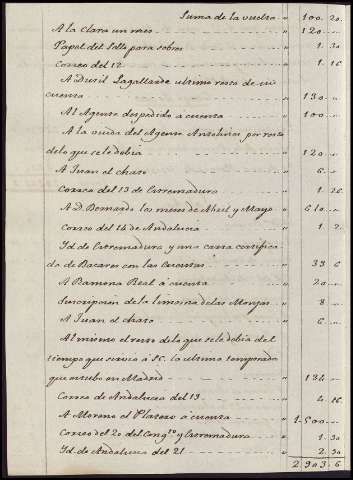 Suma de la vuelta " 100. 20.
A la Clara un mes " 120 "
Papel del Sello para sobres " 1. 30
Correo del 12 " 1. 16
A Dutil Lagallarde ultimo resto de su
cuenta " 130 "
Al Agente despedido a cuenta " 100 "
A la viuda del Agente Antolinez por resto
de lo que se le debia " 120 "
A Juan el chato " 6 "
Correo del 13 de Extremadura " 1. 26
A D. Bernardo los meses de Abril y Mayo " 610 "
Correo del 14 de Andalucia " 1. 2.
Id. de Extremadura y una carta certifica
da de Bacares con las Cuentas " 33 6
A Ramona Real á cuenta " 20 "
Suscripcion de la limosna de las Monjas " 8 "
A Juan el chato " 6 "
Al mismo el resto de lo que se le debia del
tiempo que sirvio á SE. la ultima temporada
que estubo en Madrid " 134 "
Correo de Andalucia del 19 " 4 16
A Moreno el Platero á cuenta 1.500 "
Correo del 20 del Cong.to y Extremadura " 1. 30
Id. de Andalucia del 21 " 2. 30
2.903. 6